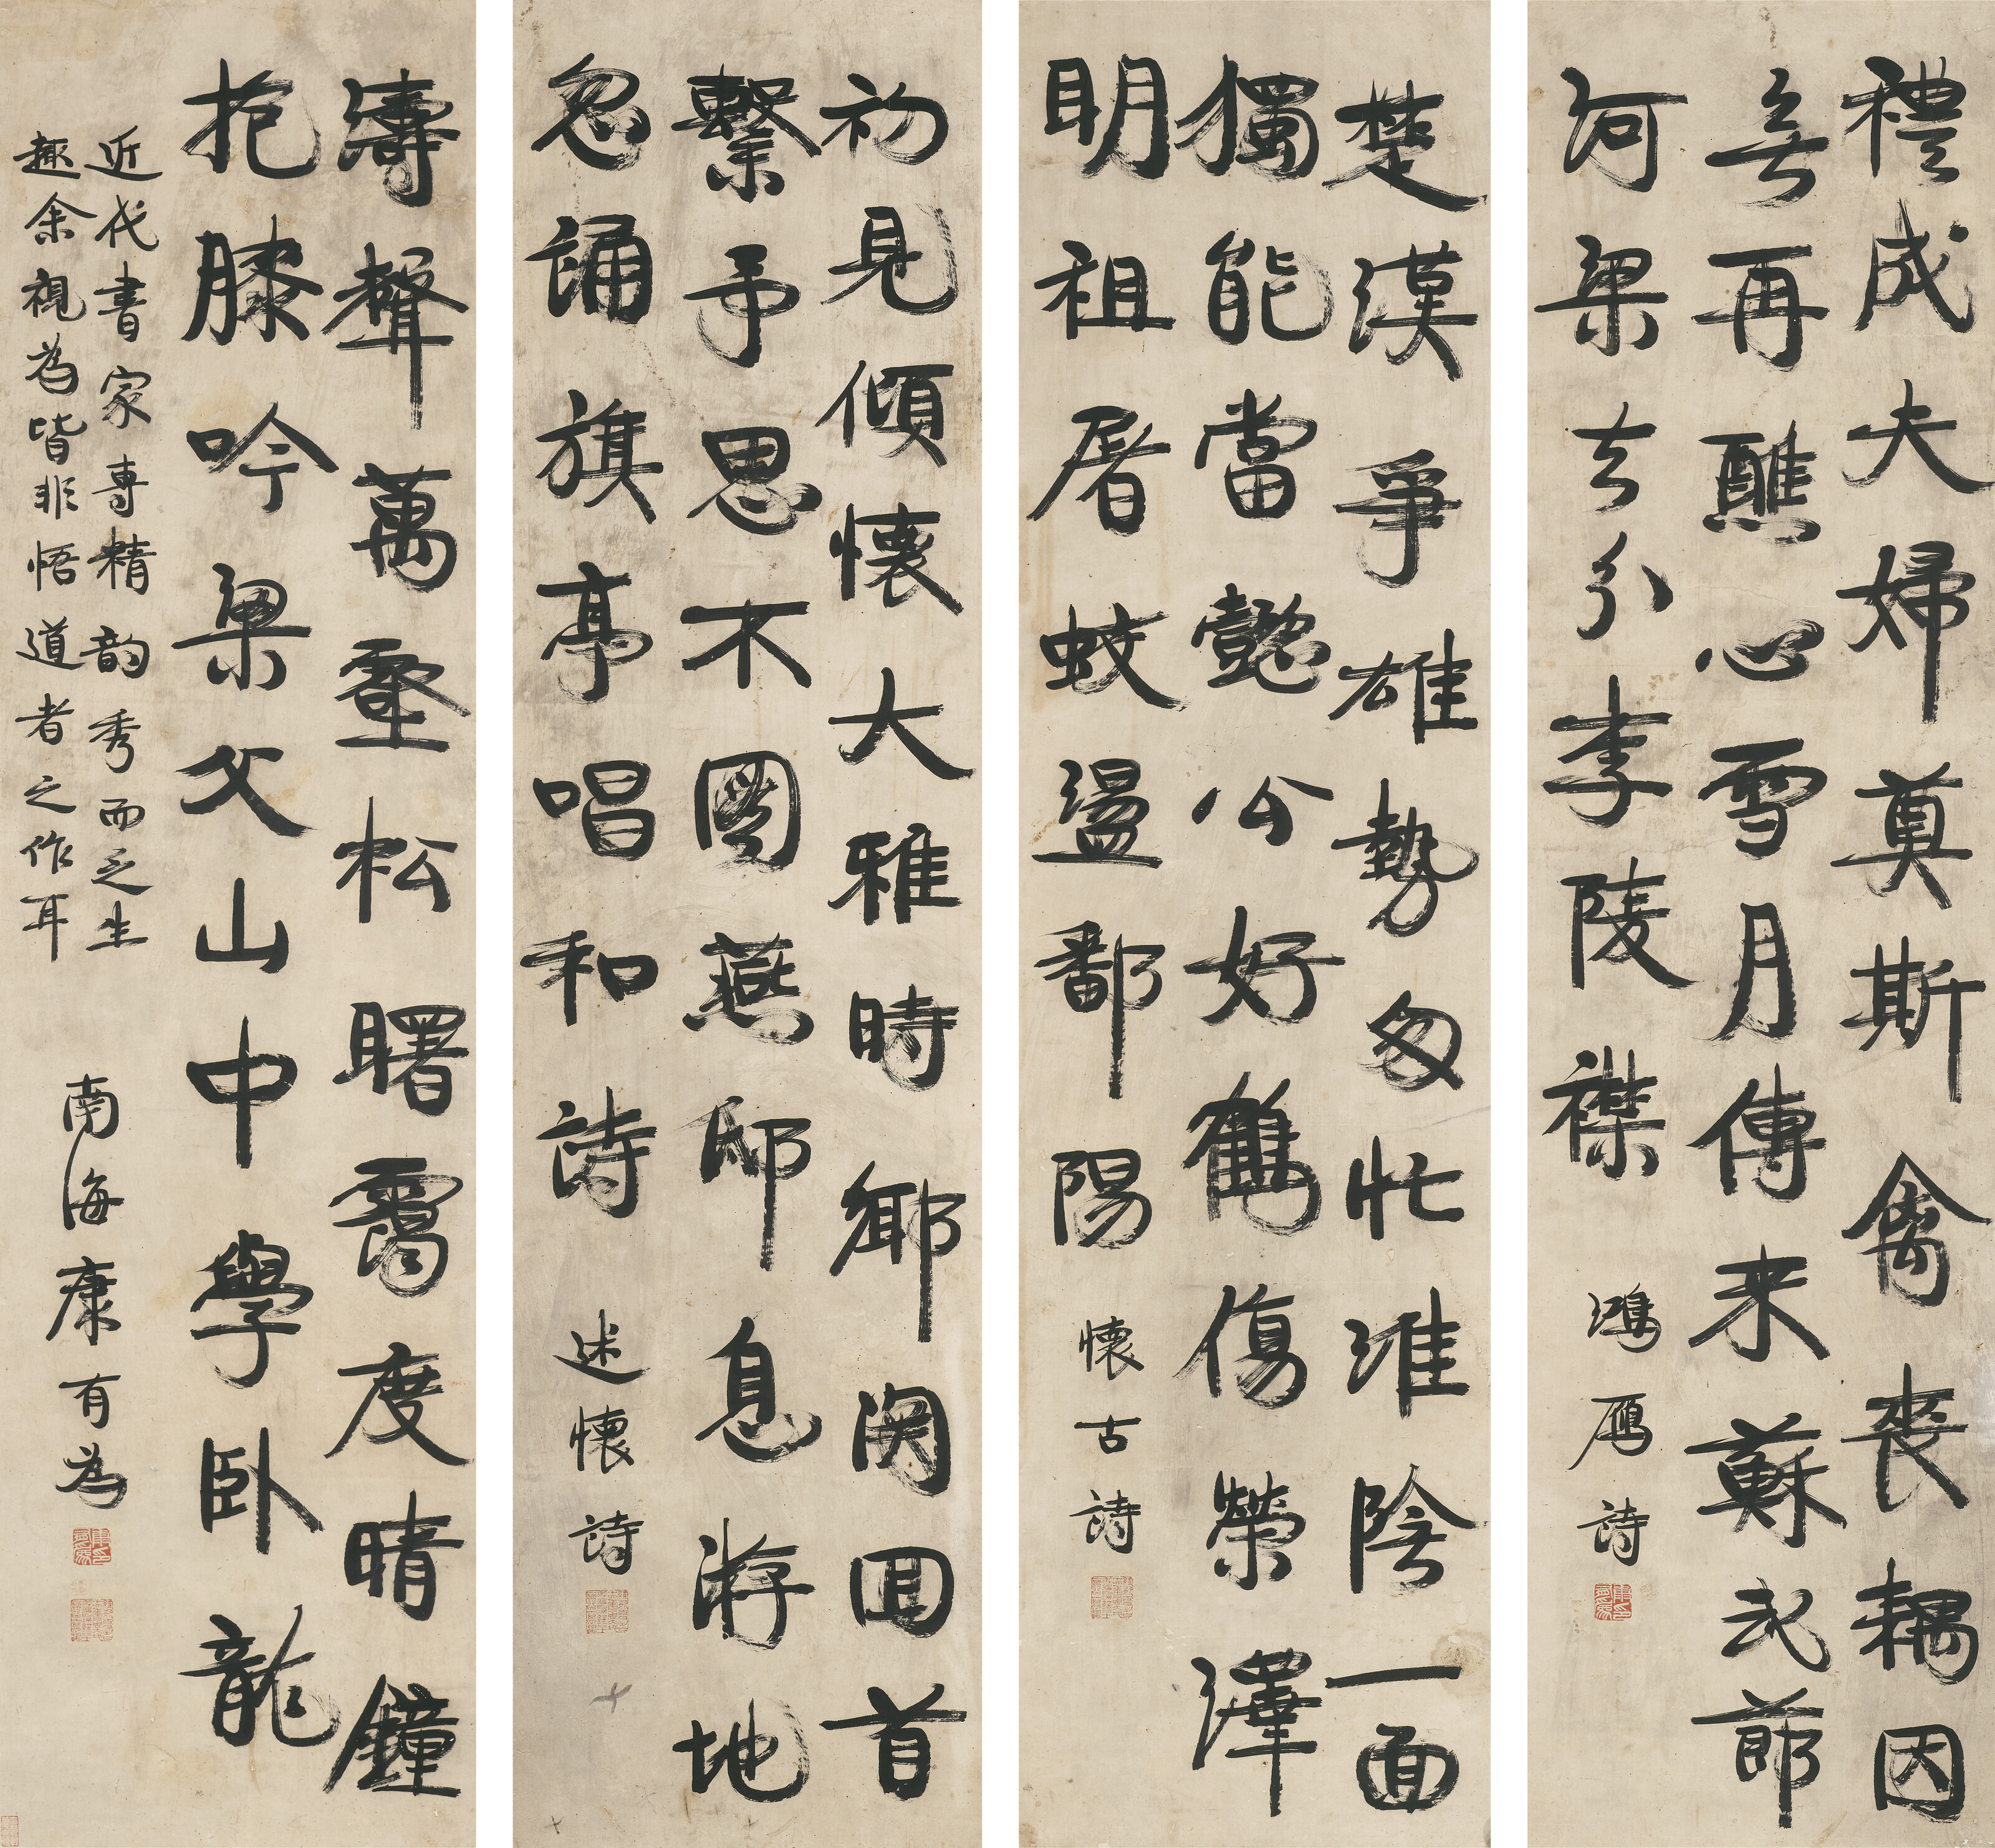 禮成夫婦奠斯禽喪耦因
無再醮心雪月傳来蘇武節
河梁去分李陵襟
鴻雁詩
楚漢爭雄勢匆忙淮陰一面
獨能當懿公好鶴傷榮澤
明祖屠蛟盪鄱陽
懷古詩
初見傾懷大雅時鄉関回首
繫予思不圖燕邸息游地
忽誦旗亭唱和詩
述懷詩
濤聲萬壑松曙靄度晴鐘
抱膝吟梁父山中學臥龍
近代書家專精韵秀而乏生
趣余視為皆非悟道者之作耳
南海康有為